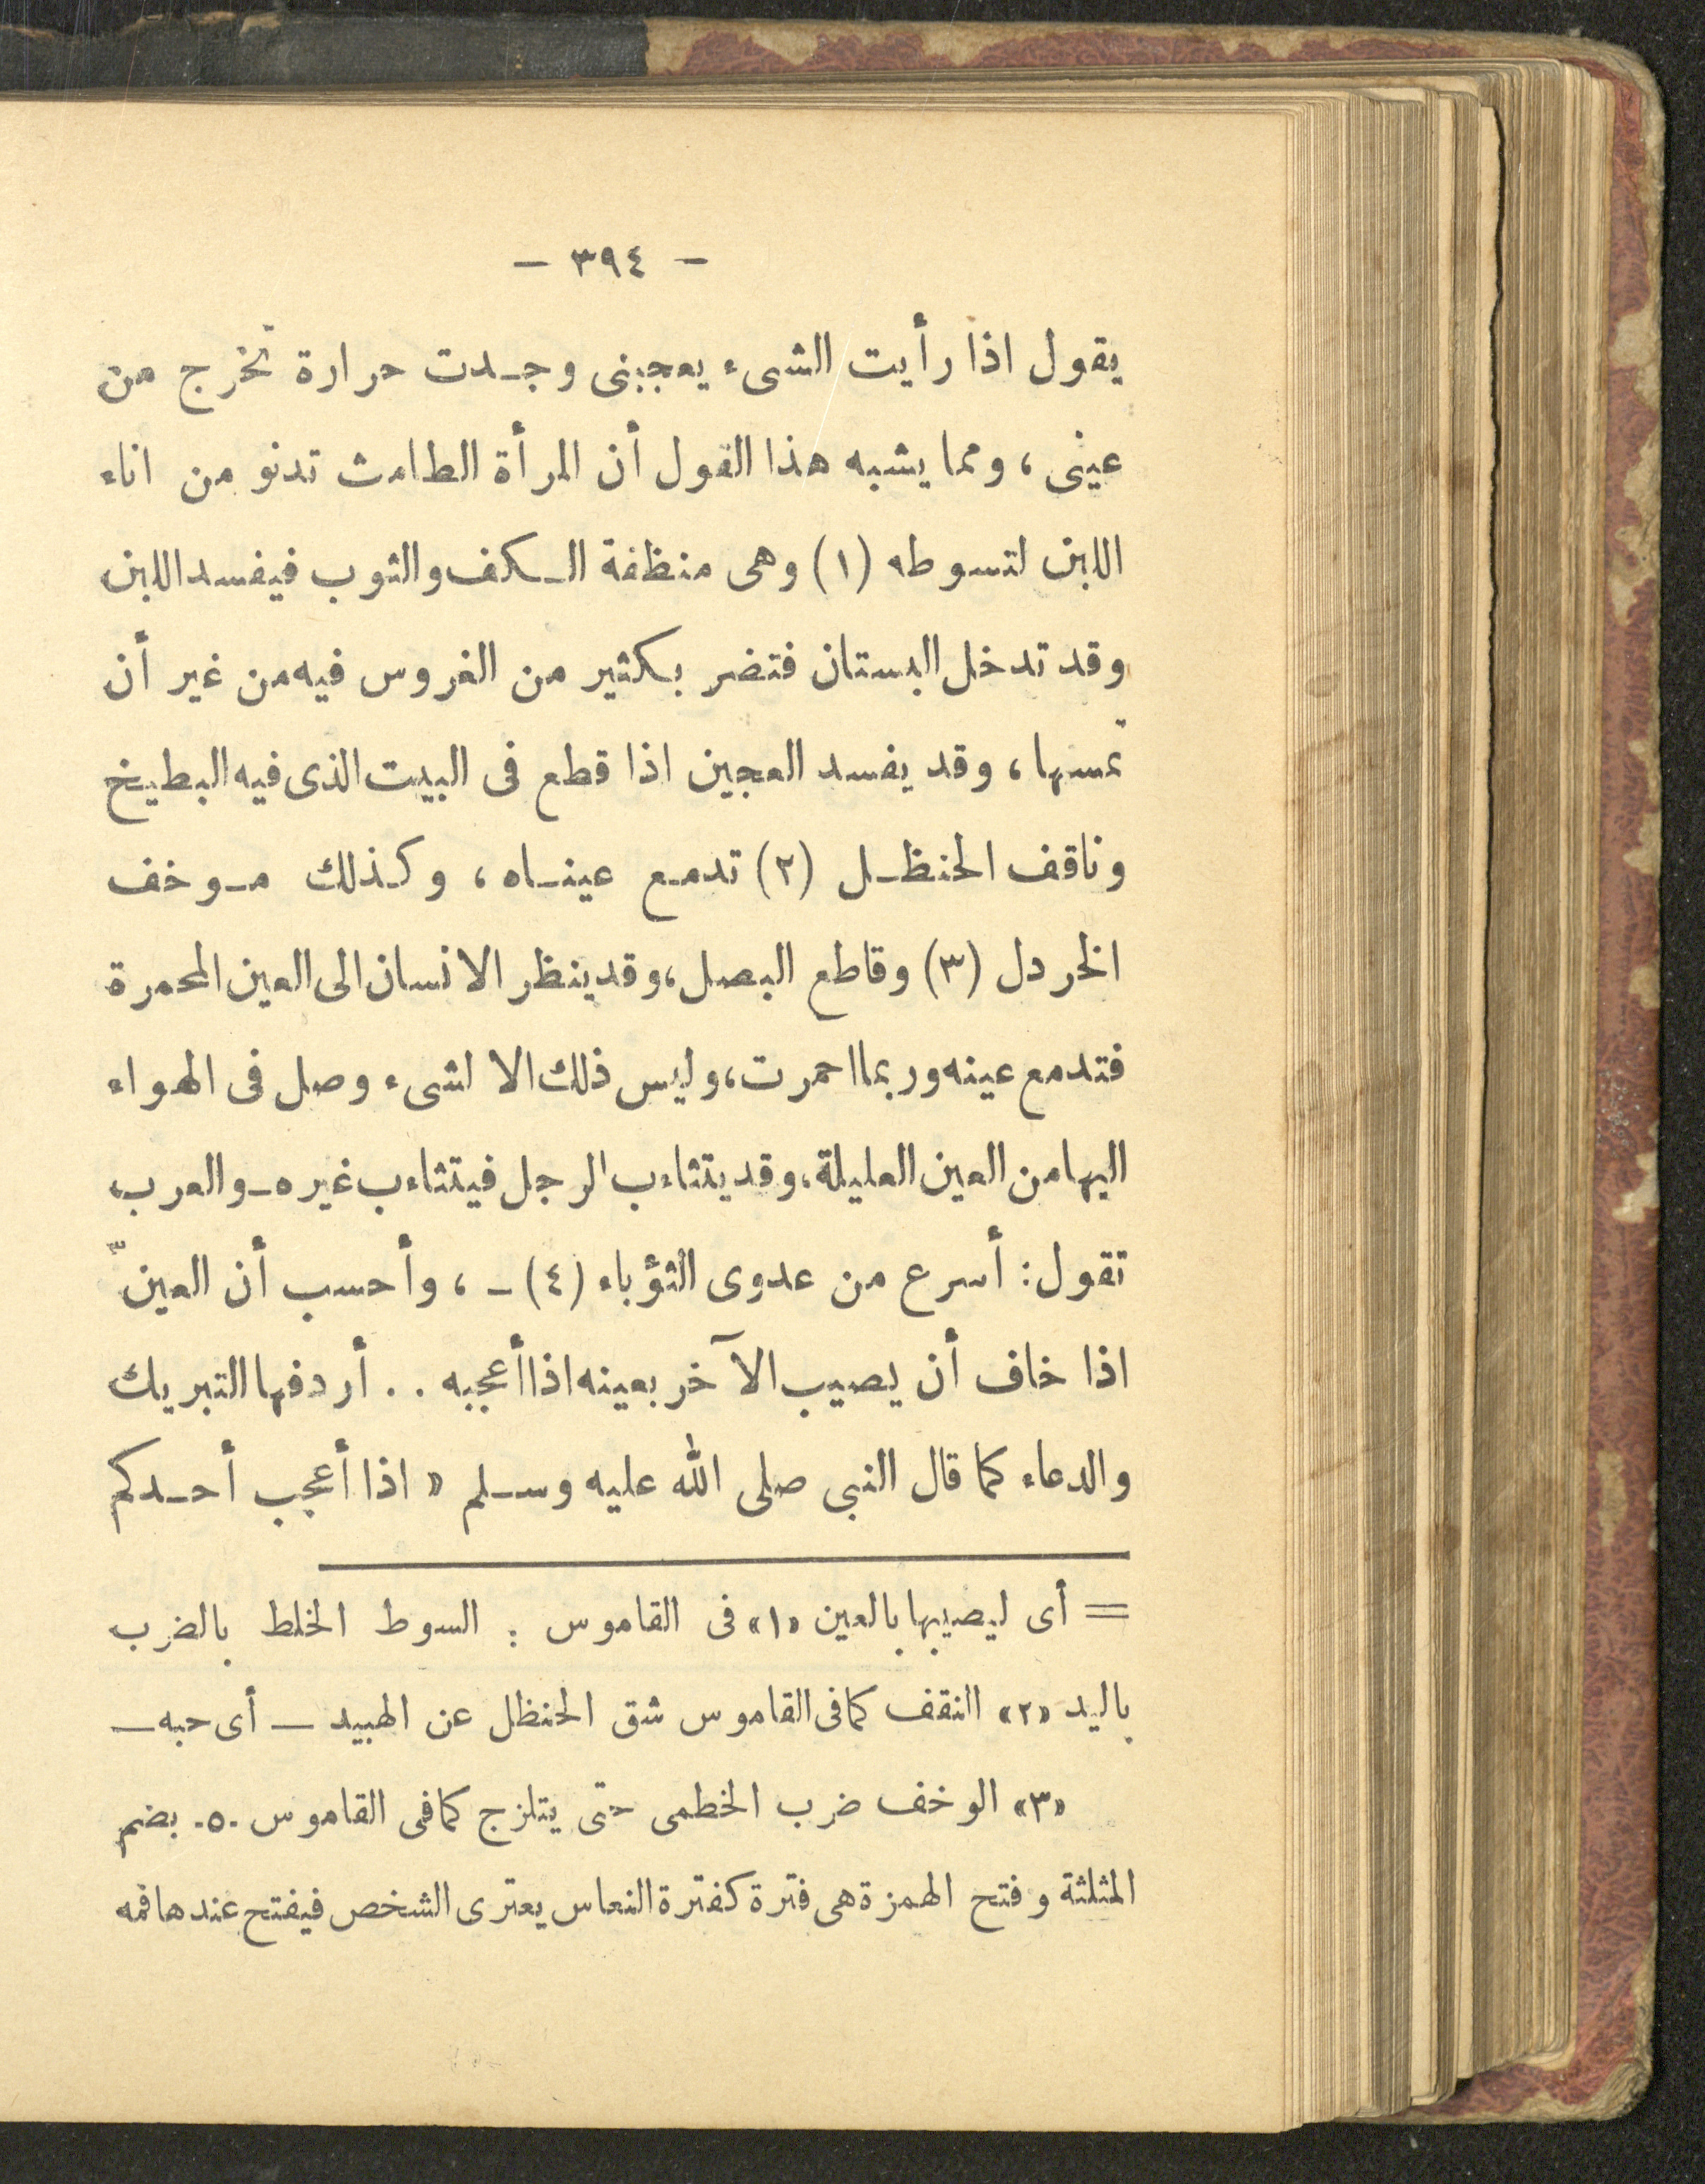 - ٣٩٤ -
يقول اذا رأيت الشىء يعجبنى وجدت حرارة تخرج من
عينى ، ومما يشبه هذا القول أن المرأة الطامث تدنو من اناء
اللبن لتسوطه (١) وهى منظفة الكف والثوب فيفسد اللبن
وقد تدخل البستان فتضر بكثير من الغروس فيه من غير أن
تمسها ، وقد يفسد العجين اذا قطع فى البيت الذى فيه البطيخ
وناقف الحنظل (٢) تدمع عيناه ، وكذلك موخف
الخردل (٣) وقاطع البصل ، وقد ينظر الانسان الى العين المحمرة
فتدمع عينه وربما احمرت ، وليس ذلك الا لشىء وصل فى الهواء
اليها من العين العليلة ، وقد يتثاءب الرجل فيتثاءب غيره - والعرب
تقول : أسرع من عدوى الثؤباء (٤) - ، وأحسب أن العينّ
اذا خاف أن يصيب الآخر بعينه اذا أعجبه . . أردفها التبريك
والدعاء كما قال النبى صلى الله عليه وسلم « اذا أعجب أحدكم
= أى ليصيبها بالعين «١» فى القاموس : السوط الخلط بالضرب
باليد «٢» النقف كمافى القاموس شق الحنظل عن الهبيد — أى حبه —
«٣» الوخف ضرب الخطمى حتى يتلزج كمافى القاموس .٥. بضم
المثلثة وفتح الهمزة هى فترة كفترة النعاس يعترى الشخص فيفتح عندها فمه